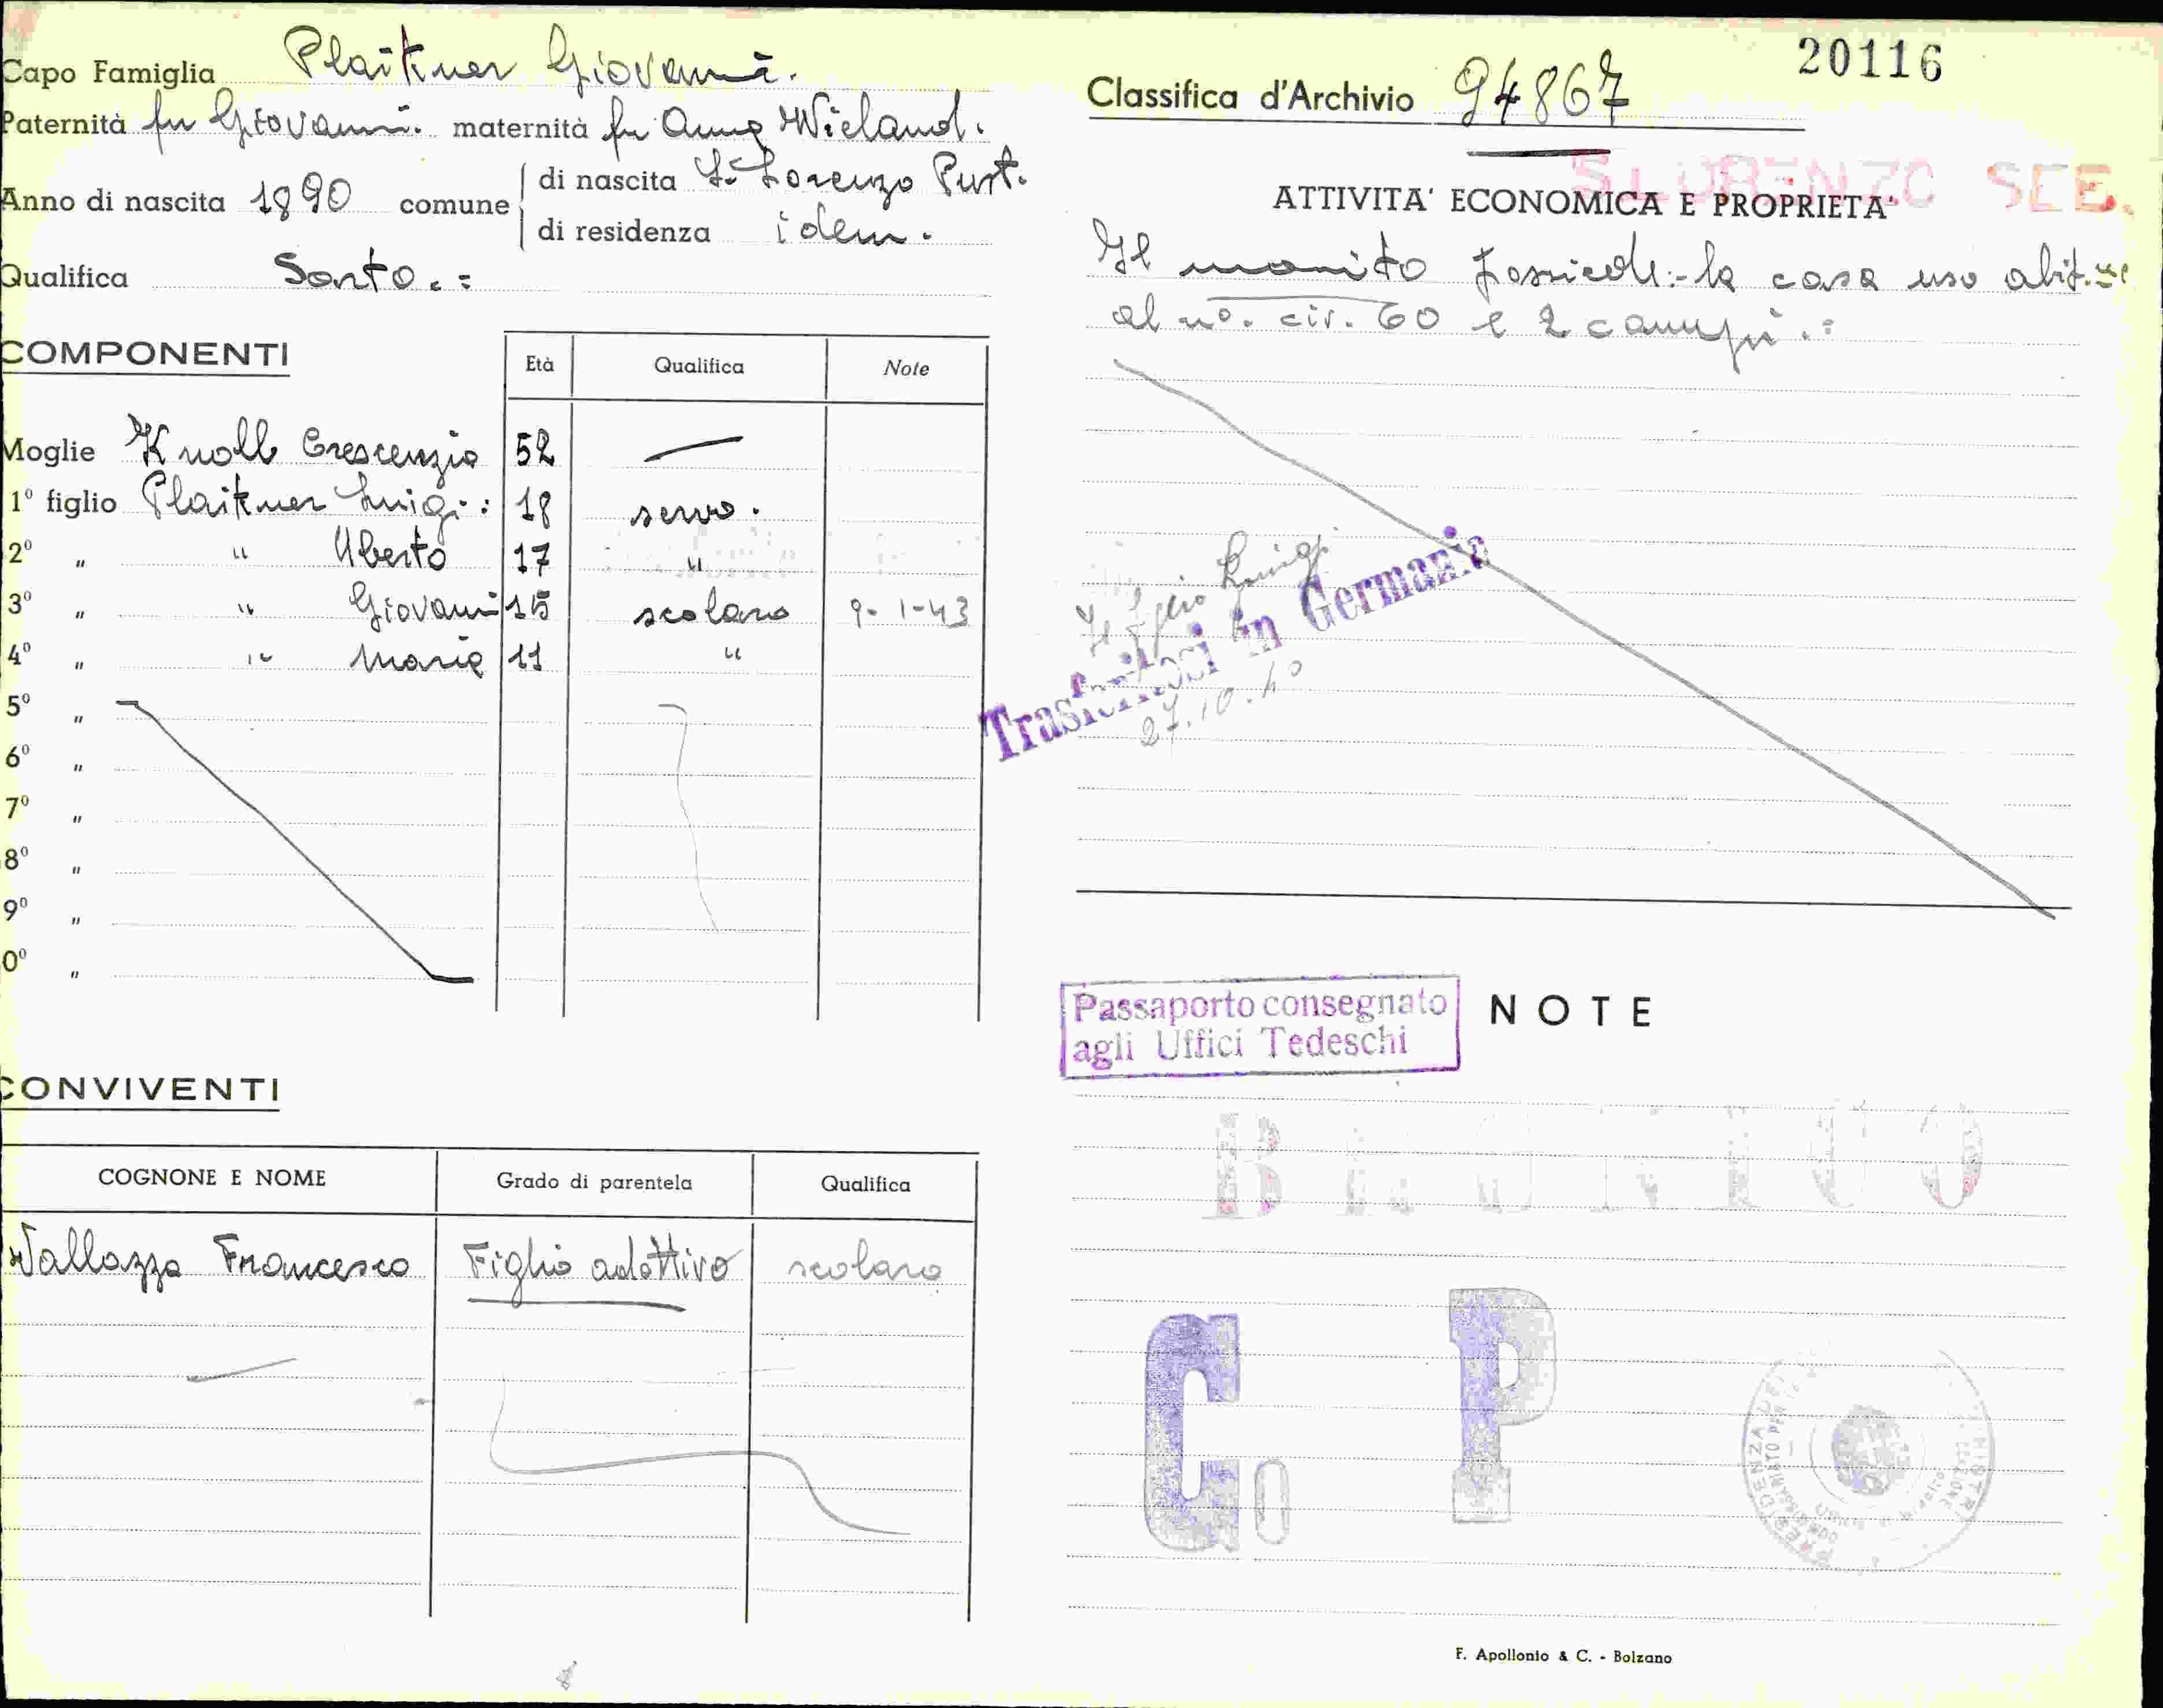 Capo Famiglia Plaikner Giovanni.
Paternità fu Giovanni. maternità fu Anna Wieland.
Anno di nascita 1890 comune di nascita S. Lorenzo Pust.
di residenza idem.
Qualifica Sarto.=
COMPONENTI
Età Qualifica Note
Moglie Knoll Crescenzia 52 —
1º figlio Plaikner Luigi: 18 servo.
2º " " Uberto 17 "
3º " " Giovanni 15 scolaro 9-1-43
4º " " Maria 11 "
5º "
6º "
7º "
8º "
9º "
0º "
CONVIVENTI
COGNONE E NOME Grado di parentela Qualifica
Vallazza Francesco Figlio adottivo scolaro
20116
Classifica d'Archivio 94867
S LORENZO SEB.
ATTIVITA' ECONOMICA E PROPRIETA'
Il marito possiede:- la casa uso abit.ne
al nº. civ. 60 e 2 campi.=
Il figlio Luigi
Trasferitosi in Germania
27.10.40
Passaporto consegnato
agli Uffici Tedeschi
NOTE
BRUNICO
C. P
F. Apollonio & C. - Bolzano